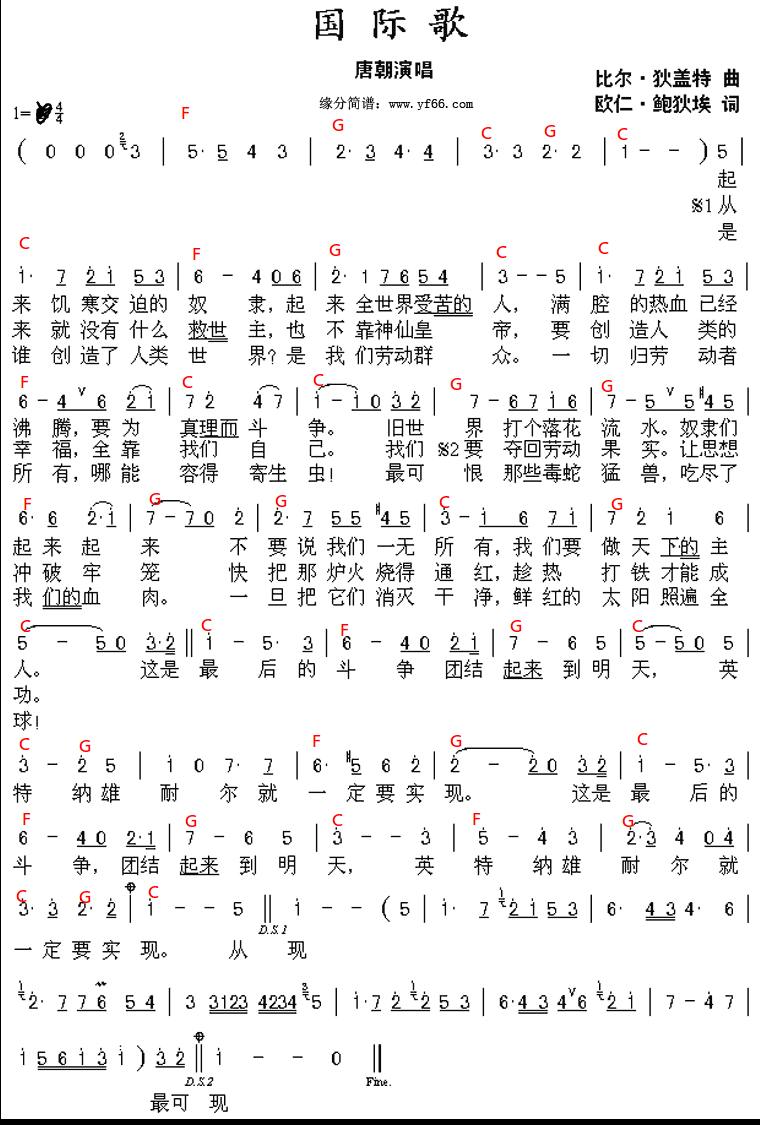 国际歌
唐朝演唱
比尔·狄盖特 曲
缘分简谱：www.yf66.com
欧仁·鲍狄埃 词
1= 4/4
F G C G C
( 0 0 0 3 | 5· 5 4 3 | 2· 3 4· 4 | 3· 3 2· 2 | 1 - - ) 5 |
起
§1从
是
C F G C C
1· 7 2 1 5 3 | 6 - 4 0 6 | 2· 1 7 6 5 4 | 3 - - 5 | 1· 7 2 1 5 3 |
来 饥 寒交 迫的 奴 隶，起 来 全世界受苦的 人， 满 腔 的热血 已经
来 就没有 什么 救世 主，也 不 靠神仙皇 帝， 要 创 造人 类的
谁 创造了 人类 世 界？是 我 们劳动群 众。 一 切 归劳 动者
F C C G G
6 - 4 6 2 1 | 7 2 4 7 | 1 - 1 0 3 2 | 7 - 6 7 1 6 | 7 - 5 5 #4 5 |
沸 腾，要 为 真理而 斗 争。 旧世 界 打个落花 流 水。奴隶们
幸 福，全 靠 我们 自 己。 我们 §2要 夺回劳动 果 实。让思想
所 有，哪 能 容得 寄生 虫！ 最可 恨 那些毒蛇 猛 兽，吃尽了
F G G C G
6· 6 2· 1 | 7 - 7 0 2 | 2· 7 5 5 #4 5 | 3 - 1 6 7 1 | 7 2 1 6 |
起来起 来 不 要说我们 一无 所 有，我们要 做天下的主
冲破牢 笼 快 把那炉火 烧得 通 红，趁热 打铁才能成
我们的血 肉。 一 旦把它们 消灭 干 净，鲜红的 太阳照遍全
C C F G C
5 - 5 0 3· 2 ‖ 1 - 5· 3 | 6 - 4 0 2 1 | 7 - 6 5 | 5 - 5 0 5 |
人。 这是 最 后的 斗 争 团结 起来 到明 天， 英
功。
球！
C G F G C
3 - 2 5 | 1 0 7· 7 | 6· #5 6 2 | 2 - 2 0 3 2 | 1 - 5· 3 |
特 纳雄 耐 尔就 一定要实 现。 这是 最 后的
F G C F G
6 - 4 0 2· 1 | 7 - 6 5 | 3 - - 3 | 5 - 4 3 | 2· 3 0 4 |
斗 争，团结 起来 到明 天， 英 特 纳雄 耐 尔就
C G C
3· 3 2· 2 | 1 - - 5 ‖ 1 - - ( 5 | 1· 7 2 1 5 3 | 6· 4 3 4· 6 |
D.S.1
一定要实 现。 从 现
2· 7 7 6 5 4 | 3 3123 4234 5 | 1· 7 2 2 5 3 | 6· 4 3 4 6 2 1 | 7 - 4 7 |
1 5 6 1 3 1 ) 3 2 ‖ 1 - - 0 ‖
D.S.2 Fine.
最可 现